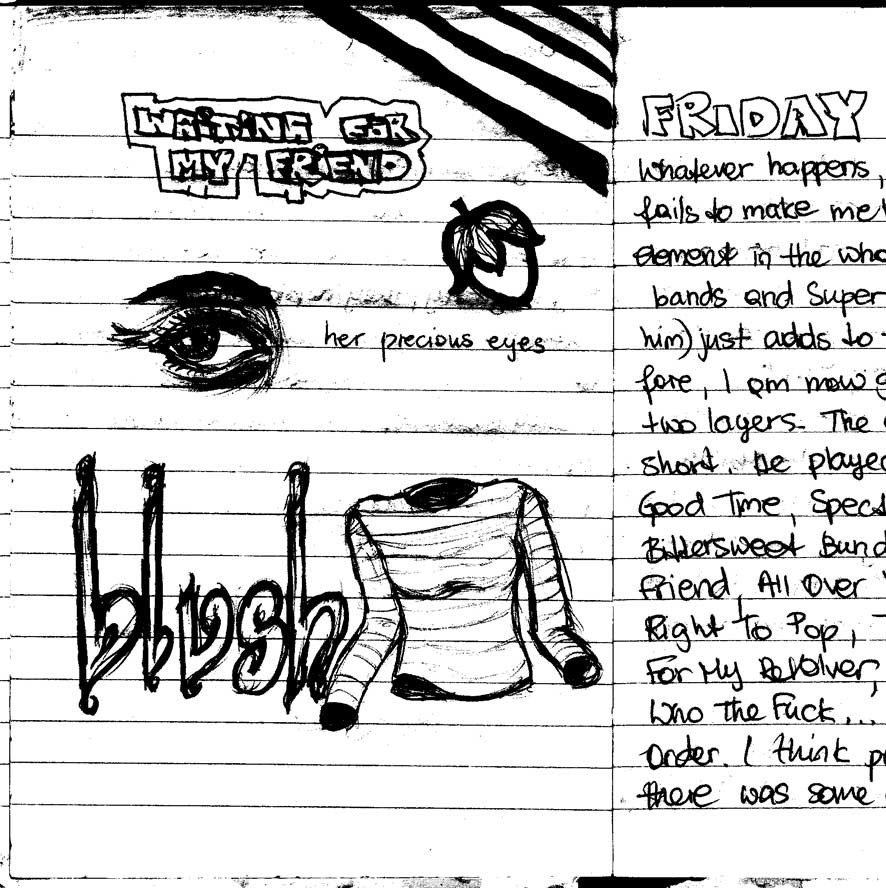 WAITING FOR
MY FRIEND
her precious eyes
blush
FRIDAY
Whatever happens,
fails to make me
element in the who
bands and Super
him) just adds to
fore, I am now
two layers. The
short. He player
Good Time, Spect
Bittersweet Bund
Friend, All Over
Right To Pop,
For My Revolver,
Who The Fuck...
Order. I think pr
there was some